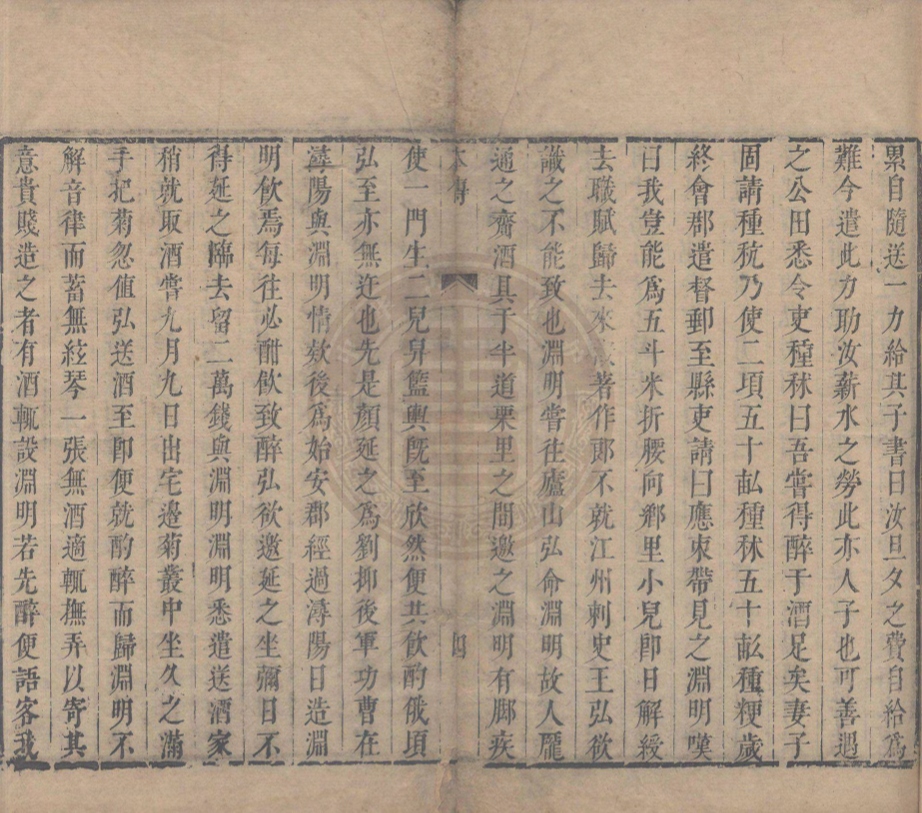 累自隨送一力給其子書曰汝旦夕之費自給爲
難今遣此力助汝薪水之勞此亦人子也可善遇
之公田悉令吏種秫曰吾嘗得醉于酒足矣妻子
固請種秔乃使二頃五十畝種秫五十畝種粳歲
終會郡遣督郵至縣吏請曰應束帶見之淵明嘆
曰我豈能爲五斗米折腰向鄉里小兒卽日解綬
去職賦歸去來著作郎不就江州刺史王弘欲
識之不能致也淵明嘗往廬山弘命淵明故人龐
通之齎酒具于半道栗里之間邀之淵明有脚疾
本傳 四
使一門生二兒舁籃輿旣至欣然便共飲酌俄頃
弘至亦無迕也先是顔延之爲劉抑後軍功曹在
潯陽與淵明情欵後爲始安郡經過潯陽日造淵
明飲焉每往必酣飲致醉弘欲邀延之坐彌日不
得延之臨去留二萬錢與淵明淵明悉遣送酒家
稍就取酒嘗九月九日出宅邊菊叢中坐久之滿
手把菊忽值弘送酒至卽便就酌醉而歸淵明不
解音律而蓄無絃琴一張無酒適輒撫弄以寄其
意貴賤造之者有酒輒設淵明若先醉便語客我